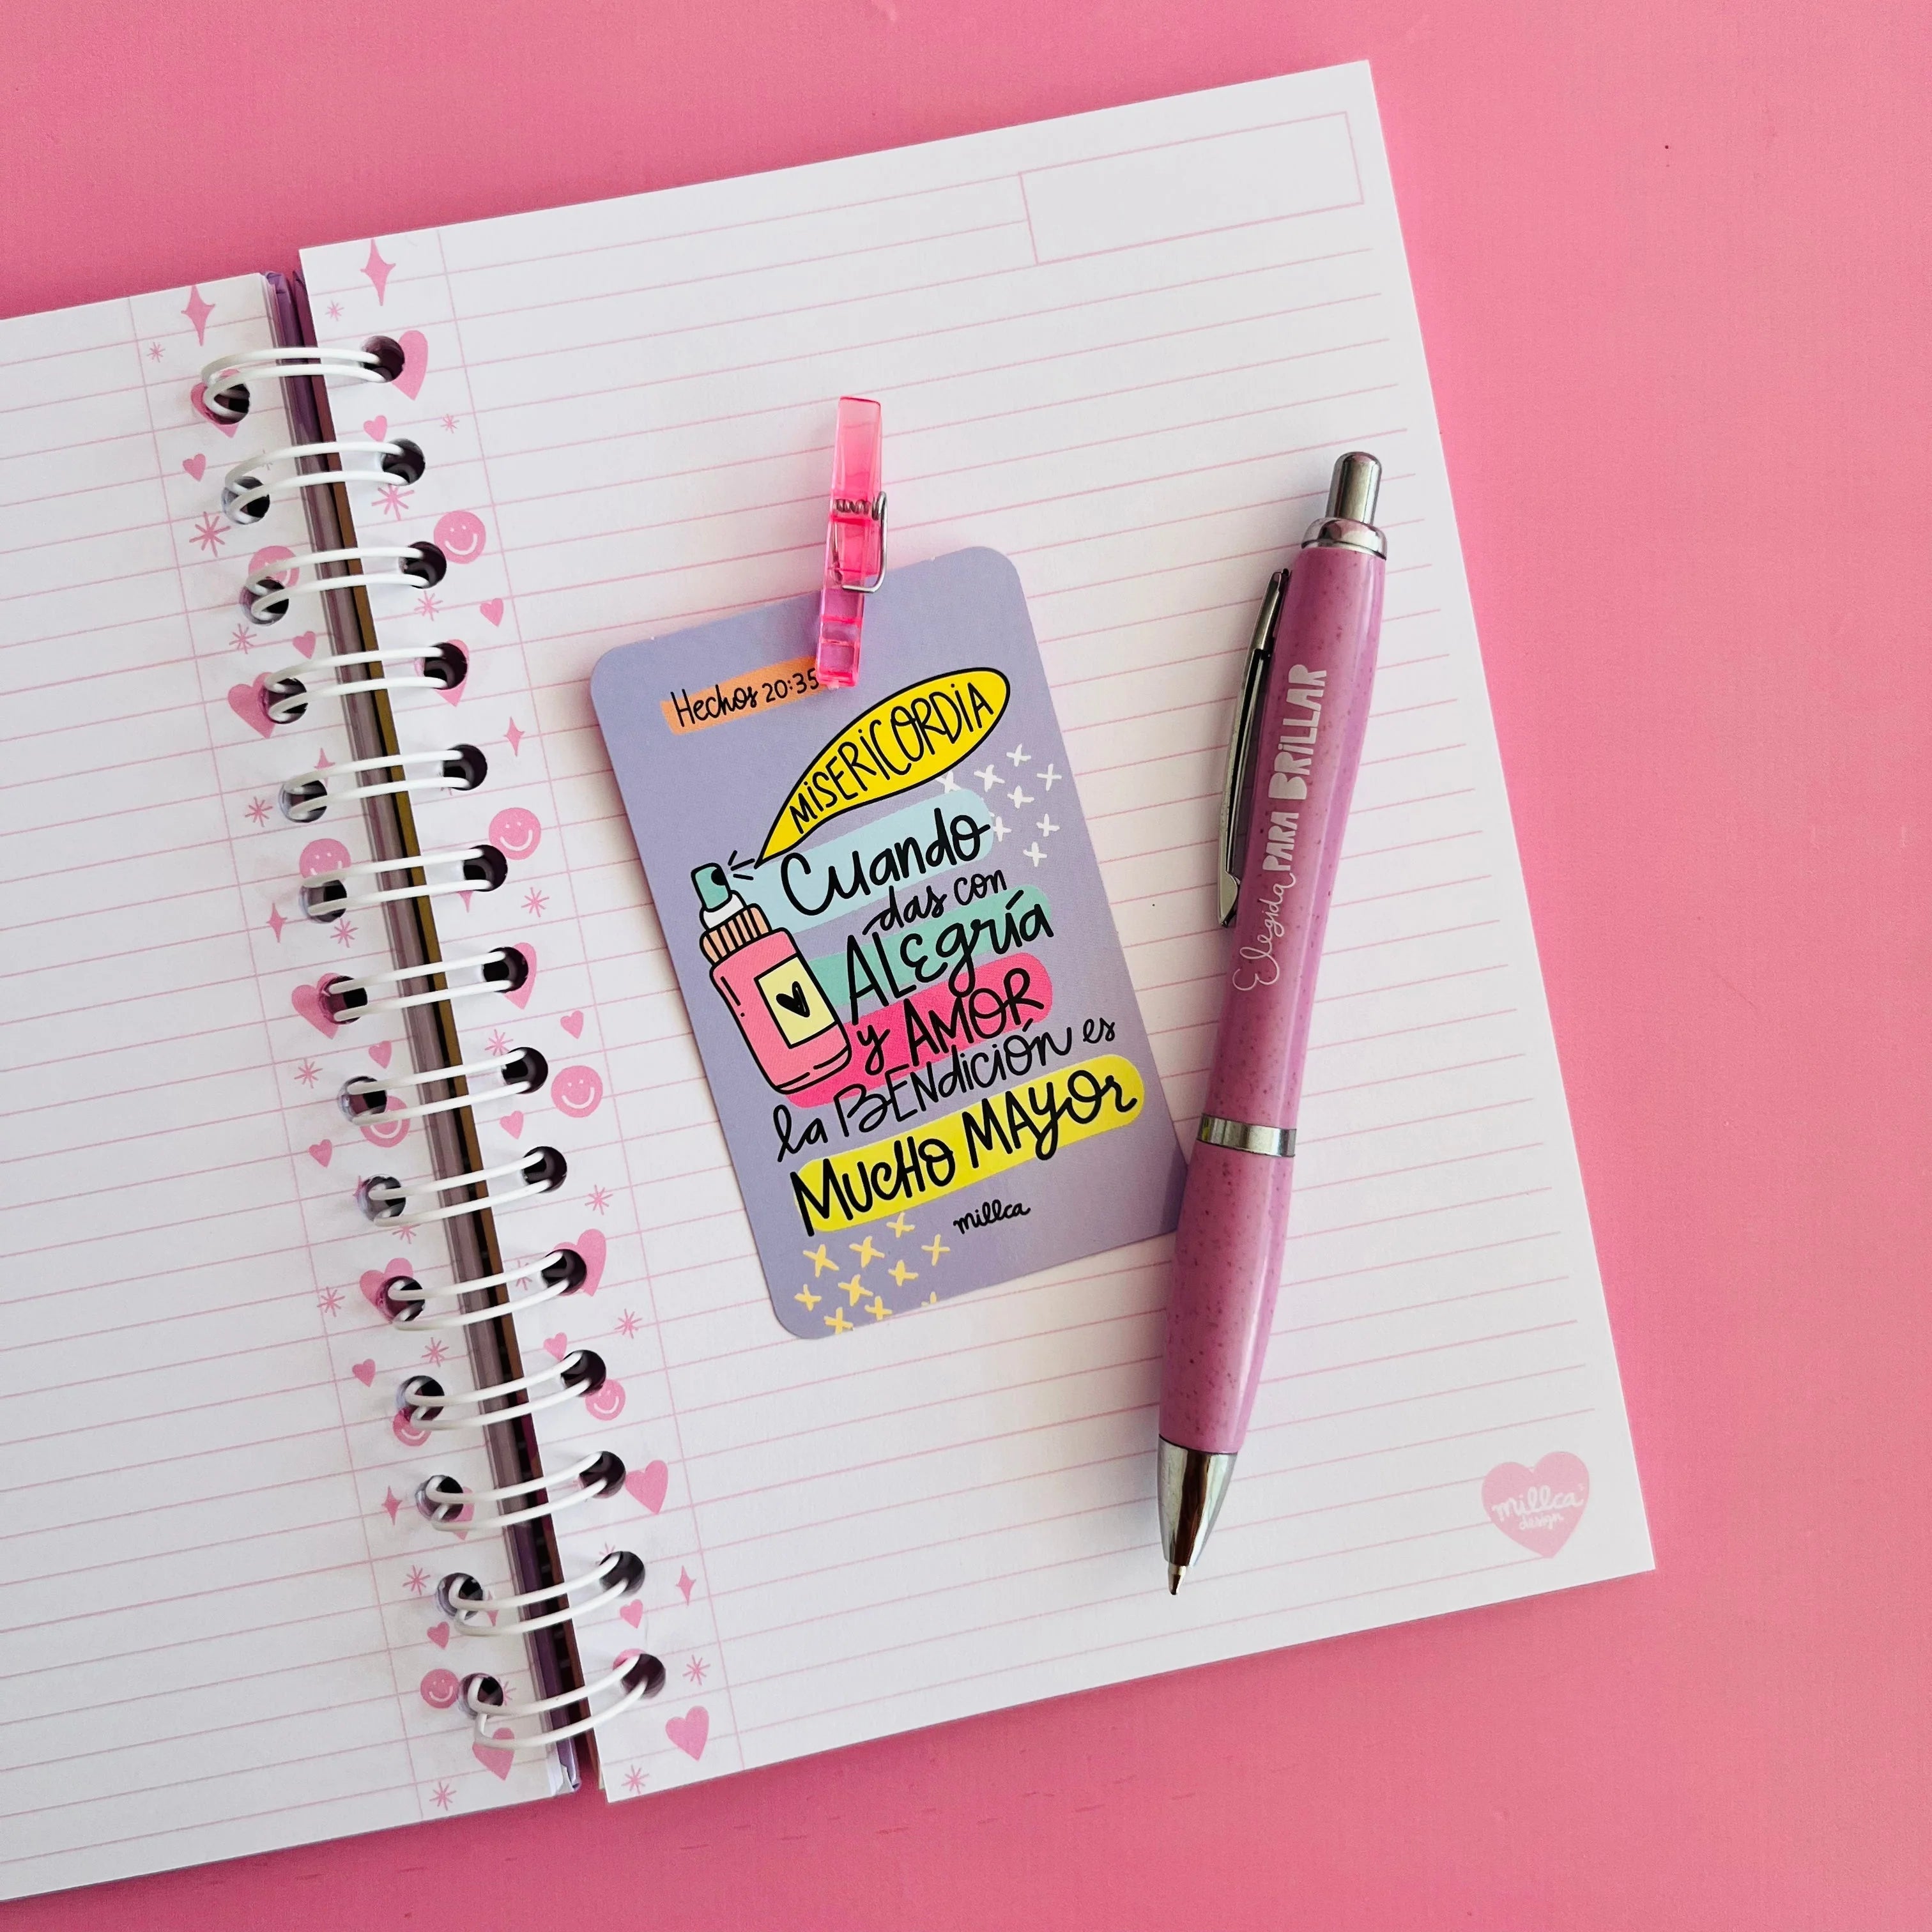 Hechos 20:35
MiSERiCORDiA
Cuando
das con
ALEgría
y AMOR
la BENdiCiÓN es
MUCHO MAYOr
millca
Elegida PARA BRiLLAR
millca
design